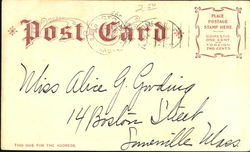 2
Post Card
PLACE
POSTAGE
STAMP HERE.
DOMESTIC
ONE CENT
FOREIGN
TWO CENTS
Miss Alice G. Gooding
14 Boston Street
Somerville Mass.
THIS SIDE FOR THE ADDRESS.